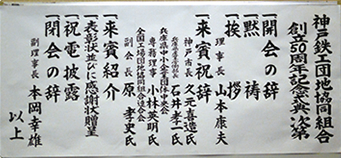 神戸鉄工団地協同組合
創立50周年記念式典次第
一 開会の辞
一 黙祷
一 挨拶
理事長 山本康夫
一 来賓祝辞
神戸市長 久元喜造氏
兵庫県中小企業団体中央会
専務理事 小林英明氏
全国工場団地協同組合連合会
副会長 原孝史氏
一 来賓紹介
一 表彰状並びに感謝状贈呈
一 祝電披露
一 閉会の辞
副理事長 本岡幸雄
以上